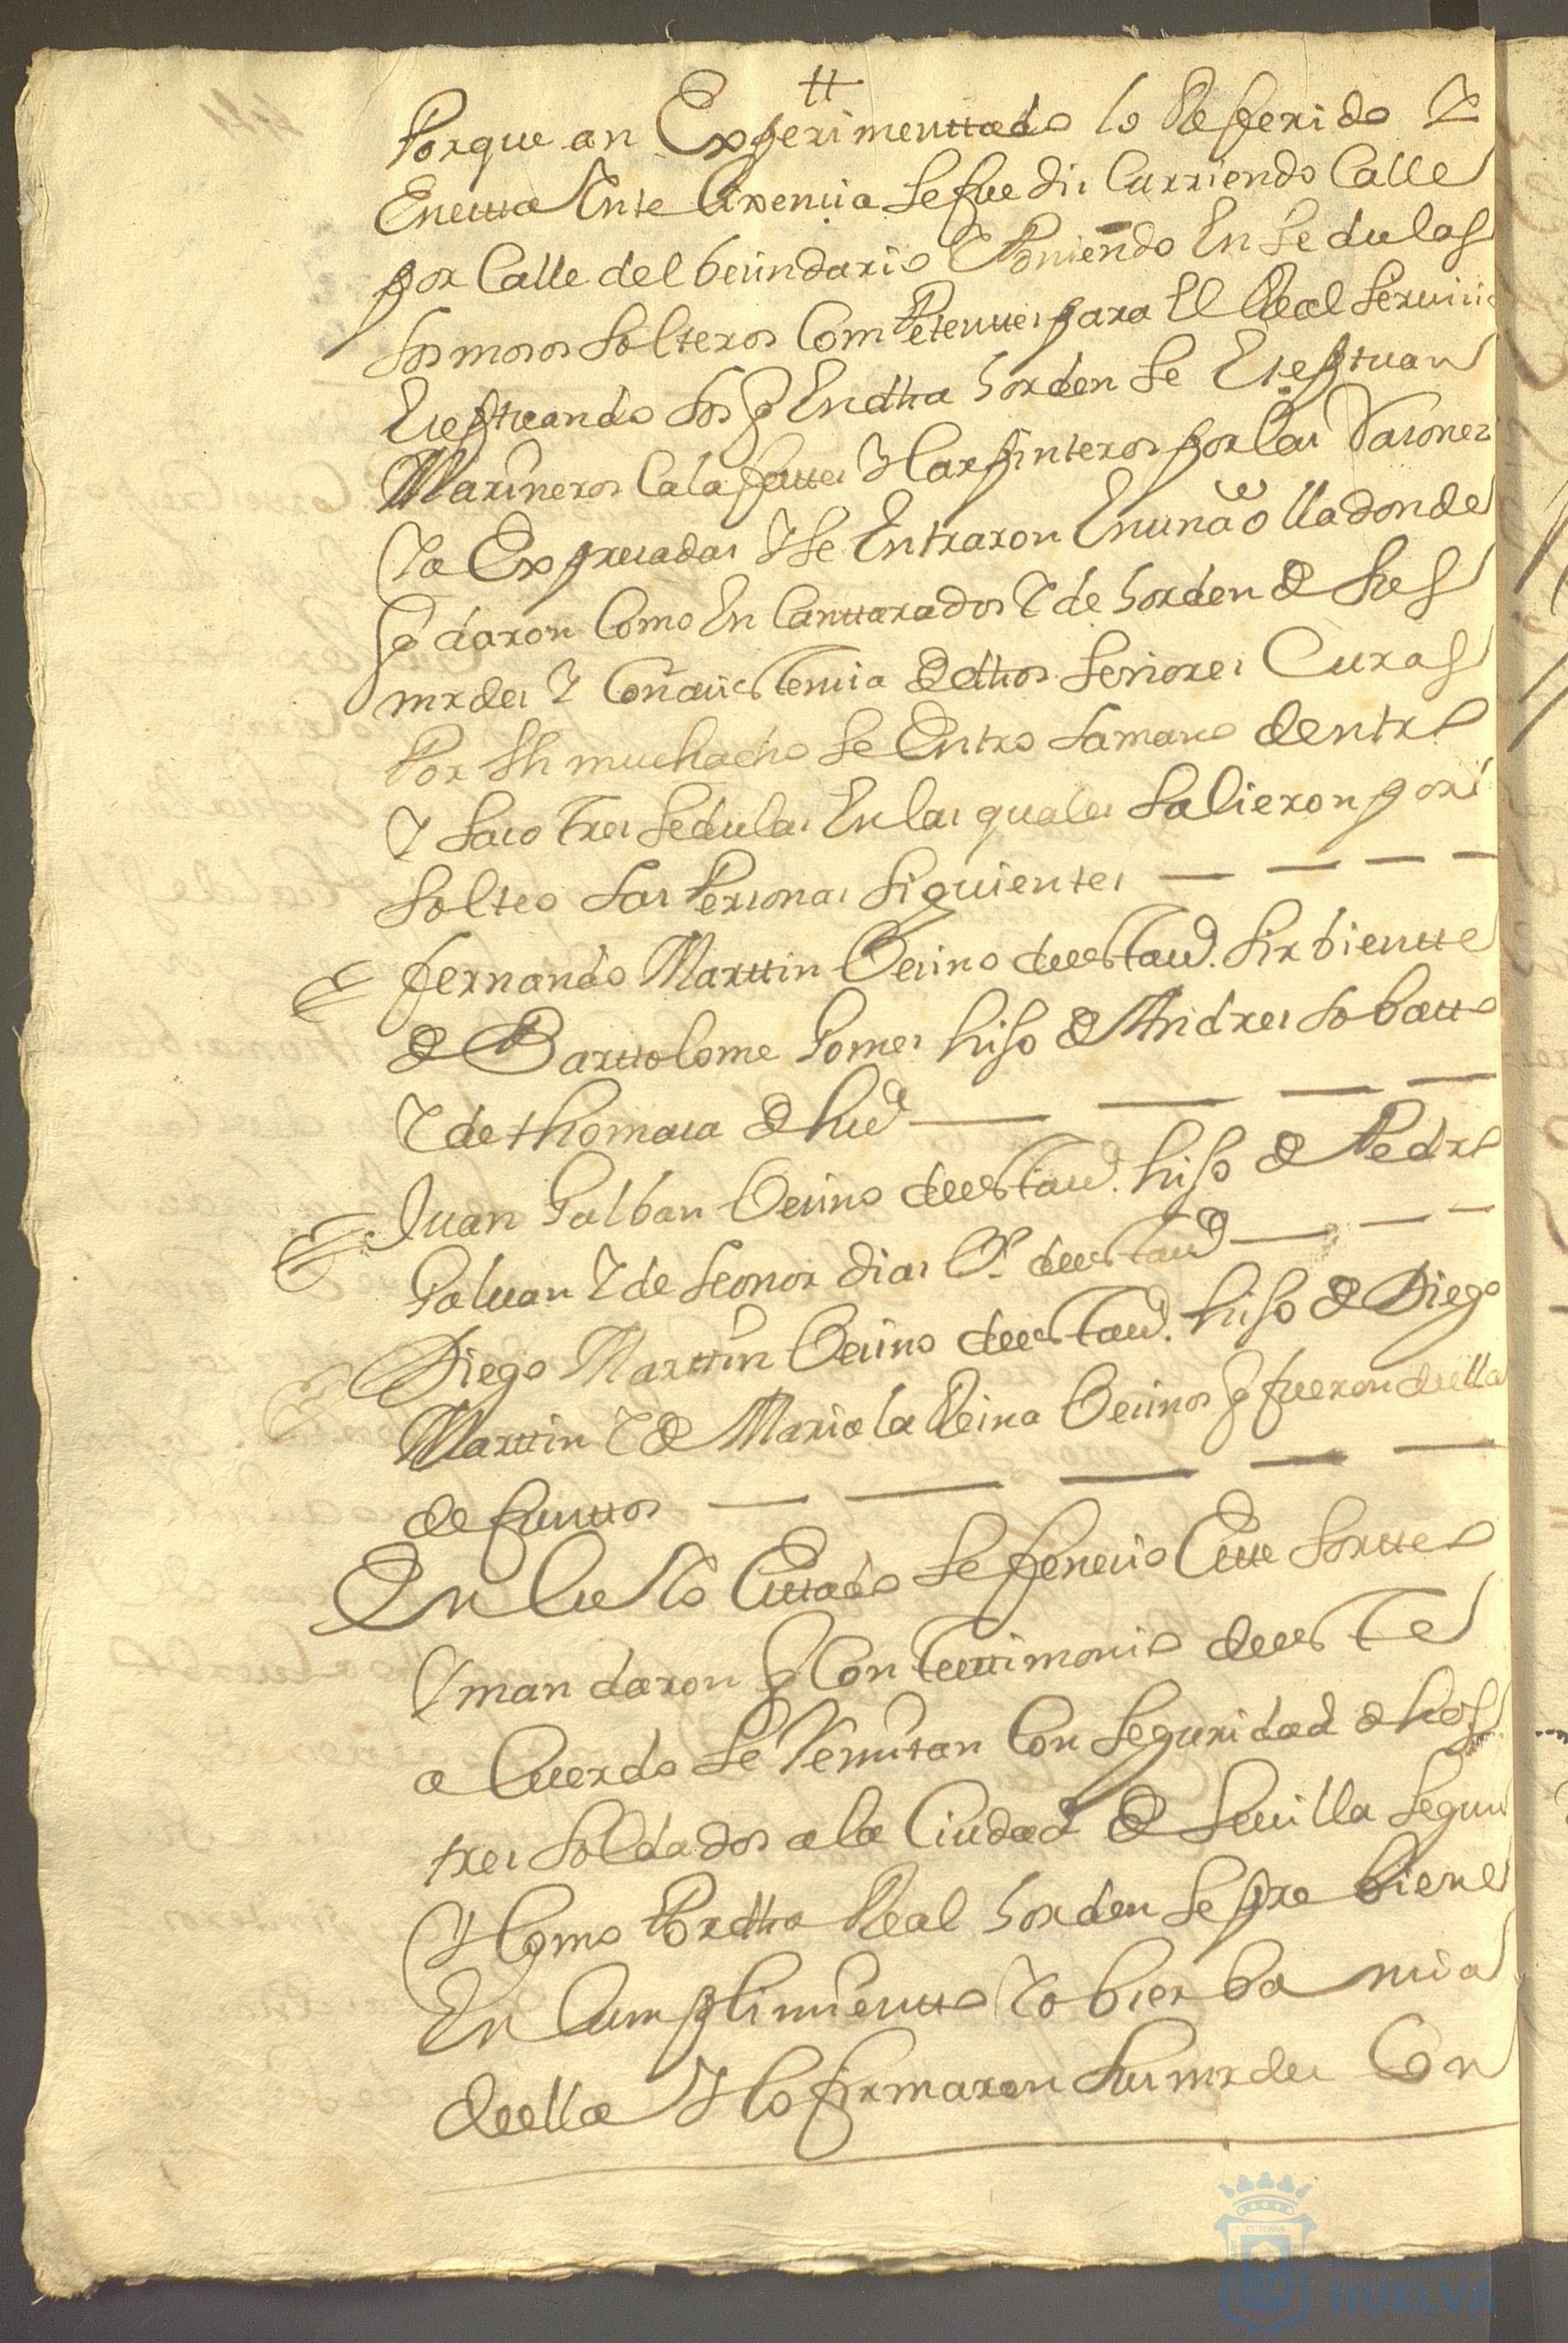 tt
Porque an Experimenttado lo Refferido Y
En estta Ynteligensia se fue discurriendo Calle
por Calle del besindario Y Poniendo En sedulas
los mosos solteros Competenttes para El Real seruisio
Esestuando los q En dha horden se Eseptuan
Marineros Calafattes Y Carpinteros por las Rasones
Ya Expresadas Y se Entraron En una olla donde
qdaron Como En Canttarados Y de horden de sus
mrdes Y Con asistensia de dhos señores Curas
Por Un muchacho se Entro la mano dentro
Y saco tres sedulas En las quales salieron por
solteo las Personas siguientes
fernando Marttin Besino de esta uª. sirbientte
de Barttolome Gomes hijo de Andres lobatto
Y de thomasa de
Juan Galban Besino de esta uª. hijo de Pedro
Galuan Y de leonor dias Vs. de esta uª
Diego Marttin Besino de esta uª. hijo de Diego
Marttin Y de Maria la Reina Besinos q fueron de ella
defunttos
En Cuyo Esttado se fenesio Este sortteo
Y mandaron q Con testtimonio de este
a Cuerdo se Remitan Con seguridad dhos
tres soldados a la Ciudad de Seuilla segun
Y Como Por dha Real horden se prebiene
En Cumplimientto Y obserbansia
de ella Y lo firmaron sus mrdes Con
HUELVA